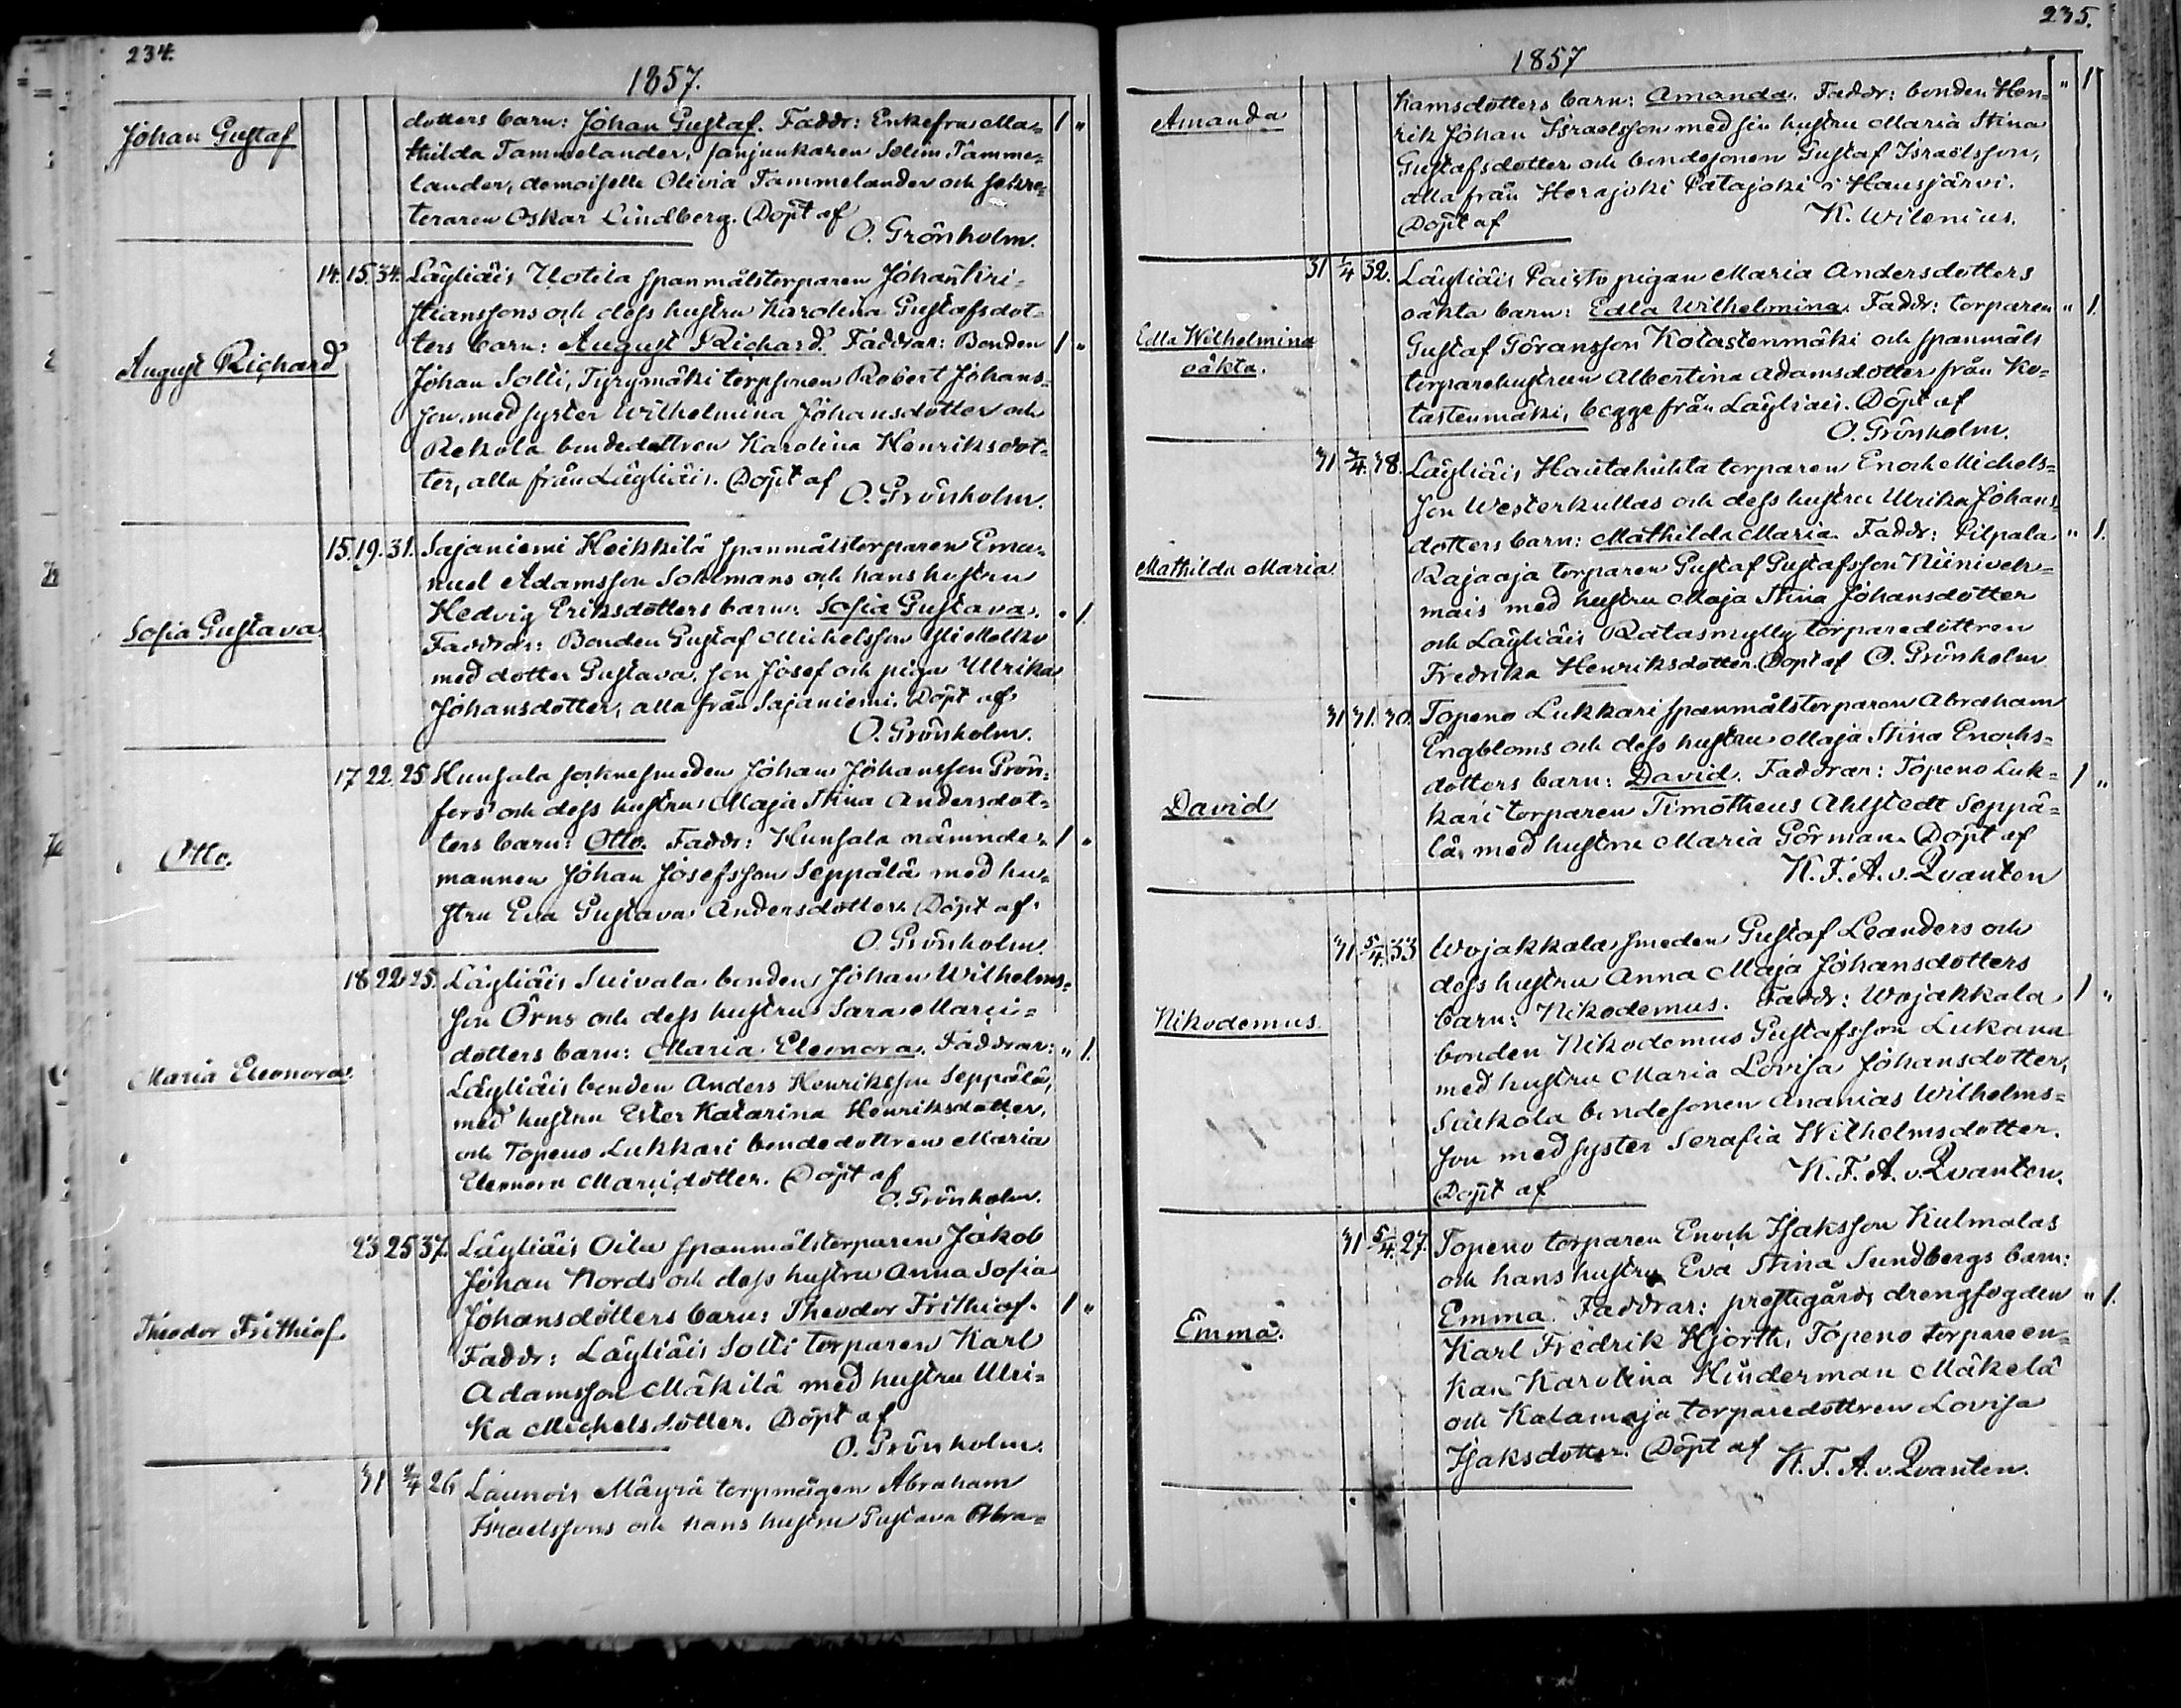 234.
1857.
Johan Gustaf
dotters barn: Johan Gustaf. Faddr: Enkefru Ma=
thilda Tammelander, fanjunkaren Selim Tamme=
lander, demoiselle Olivia Tammelander och sekre=
teraren Oskar Lindberg. Döpt af
O. Grönholm.
1 "
14. 15. 34. Läyliäis Uotila spanmålstorparen Johan Kri=
stianssons och dess hustru Karolina Gustafsdot=
August Richard
ters barn: August Richard. Faddrar: Bonden 1 "
Johan Solli, Tyrymäki torpsonen Robert Johans=
son med syster Wilhelmina Johansdotter och
Rekola bondedottren Karolina Henriksdot=
ter, alla från Läyliäis. Döpt af
O. Grönholm.
15. 19. 31. Sajaniemi Heikkilä spanmålstorparen Ema=
nuel Adamsson Sohlmans och hans hustru
Hedvig Eriksdotters barn: Sofia Gustava. " 1.
Sofia Gustava
Faddrar: Bonden Gustaf Michelsson
med dotter Gustava, son Josef och pigan Ulrika
Johansdotter, alla från Sajaniemi. Döpt af
O. Grönholm.
17 22. 25. Hunsala socknesmeden Johan Johansson Grön=
fors och dess hustru Maja Stina Andersdot=
Otto.
ters barn: Otto. Faddr: Hunsala nämnde= 1 "
mannen Johan Josefsson Seppälä med hu=
stru Eva Gustava Andersdotter. Döpt af
O. Grönholm.
18. 22. 25. Läyliäis Suivala bonden Johan Wilhelms=
son Örns och dess hustru Sara Marci=
dotters barn: Maria Eleonora. Faddrar: " 1.
Maria Eleonora.
Läyliäis bonden Anders Henriksson Seppälä,
med hustru Ester Katarina Henriksdotter,
och Topeno Lukkari bondedottren Maria
Eleonora Marcidotter. Döpt af
O. Grönholm.
23 25 37. Läyliäis Oila spanmålstorparen Jakob
Johan Nords och dess hustru Anna Sofia
Johansdotters barn: Theodor Frithiof. 1 "
Theodor Frithiof.
Faddr: Läyliäis Solli torparen Karl
Adamsson Mäkilä med hustru Ulri=
ka Michelsdotter. Döpt af
O. Grönholm.
31 2/4 26 Launois Mäyrä torpmågen Abraham
Israelssons och hans hustru Gustava Abra=
235.
1857
Amanda
hamsdotters barn: Amanda. Faddr: bonden Hen= " 1
rik Johan Israelsson med sin hustru Maria Stina
Gustafsdotter och bondesonen Gustaf Israelsson,
alla från Herajoki Patajoki i Hausjärvi.
Döpt af K. Wilenius.
31 1/4 32. Läyliäis Paisto pigan Maria Andersdotters
oäkta barn: Edla Wilhelmina. Faddr: torparen " 1.
Edla Wilhelmina
oäkta.
Gustaf Göransson Kotastenmäki och spanmåls
torparehustrun Albertina Adamsdotter från Ko=
tastenmäki, begge från Läyliäis. Döpt af
O. Grönholm.
31 2/4. 38. Läyliäis Hautahuhta torparen Enok Michels=
son Westerkullas och dess hustru Ulrika Johans
dotters barn: Mathilda Maria. Faddr: Pilpala " 1.
Mathilda Maria
Rajaoja torparen Gustaf Gustafsson Niiniveh=
mais med hustru Maja Stina Johansdotter
och Läyliäis Ratasmylly torparedottren
Fredrika Henriksdotter. Döpt af O. Grönholm
31 31. 30. Topeno Lukkari spanmålstorparen Abraham
Engbloms och dess hustru Maja Stina Enochs=
dotters barn: David. Faddrar: Topeno Luk= 1 "
David
kari torparen Timotheus Ahlstedt Seppä=
lä, med hustru Maria Görman. Döpt af
K. F. A. v. Qvanten
31 5/4. 33 Wojakkala smeden Gustaf Leanders och
dess hustru Anna Maja Johansdotters
barn: Nikodemus. Faddr: Wojakkala 1 "
Nikodemus
bonden Nikodemus Gustafsson Lukana
med hustru Maria Lovisa Johansdotter,
bondesonen Ananias Wilhelms=
son med syster Serafia Wilhelmsdotter.
Döpt af K. F. A. v. Qvanten.
31 5/4. 27. Topeno torparen Enoch Isaksson Kulmalas
och hans hustru Eva Stina Sundbergs barn:
Emma. Faddrar: prestegårds drengfogden " 1.
Emma.
Karl Fredrik Hjorth, Topeno torpareen=
kan Karolina Hinderman Mäkelä
och Kalamaja torparedottren Lovisa
Isaksdotter. Döpt af K. F. A. v. Qvanten.